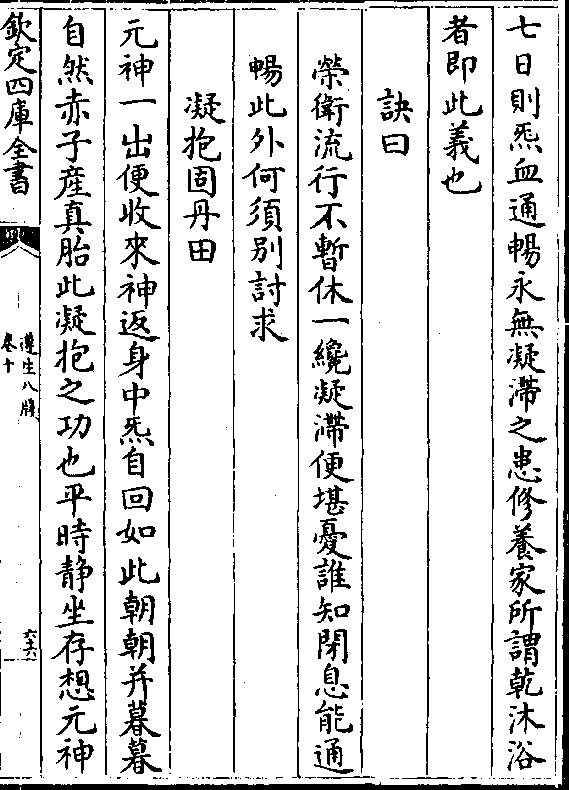 七日則炁血通暢永無凝滯之患修養家所謂乾沐浴
者即此義也
訣曰
榮衛流行不暫休一纔凝滯便堪憂誰知閉息能通
暢此外何須別討求
凝抱固丹田
元神一出便收來神返身中炁自回如此朝朝并暮暮
自然赤子産真胎此凝抱之功也平時静坐存想元神
欽定四庫全書
遵生八牋
卷十
六十六